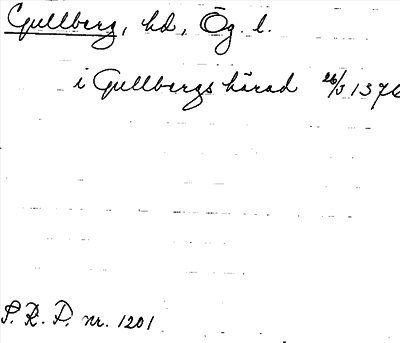 Gullberg, hd, Ög. l.
i Gullbergs härad 26/3 1376
S. R. P. nr. 1201